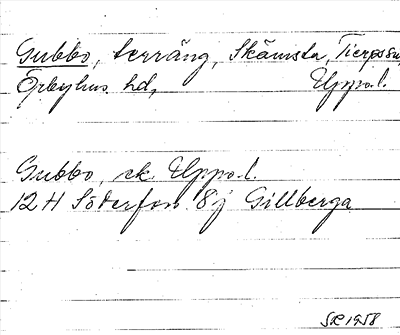 Gubbo, terräng, Skämsta, Tierps sn,
Örbyhus hd, Uppo.l.
Gubbo, ek. Uppo.l.
12 H Söderfors 8j Gillberga
SOL 1958